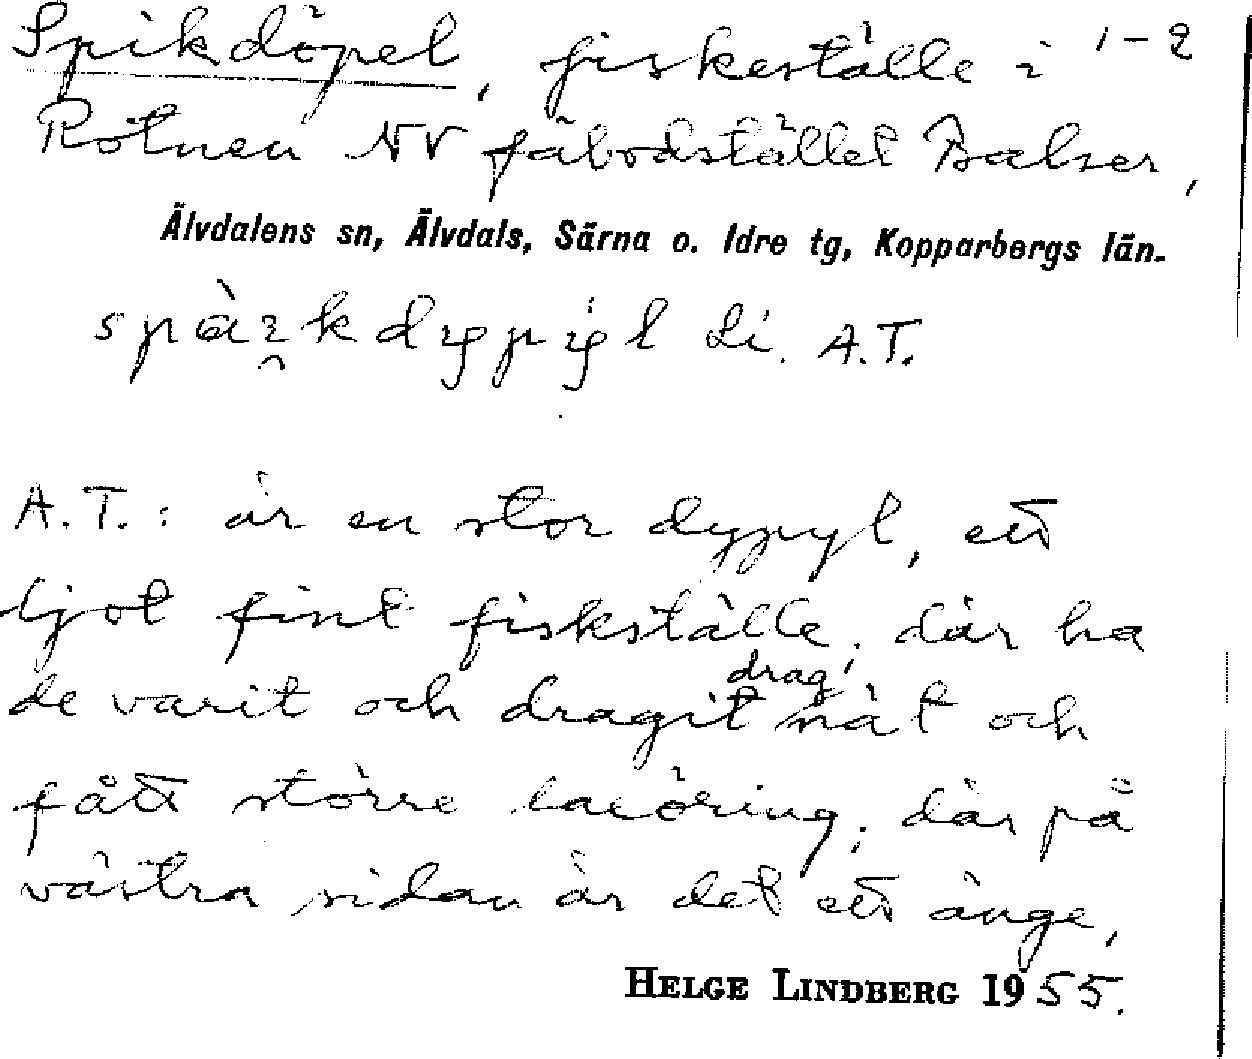 Spikdöpel, fiskeställe i 1-2
Rotnen NV fäbodstället Balser,
Älvdalens sn, Älvdals, Särna o. Idre tg, Kopparbergs län.
Li. A.T.
A.T.: är en stor dypyl, ett
ljot fint fiskställe, där ha
de varit och dragit drag nät och
fått större laxöring; där på
västra sidan är det ett änge,
HELGE LINDBERG 1955.